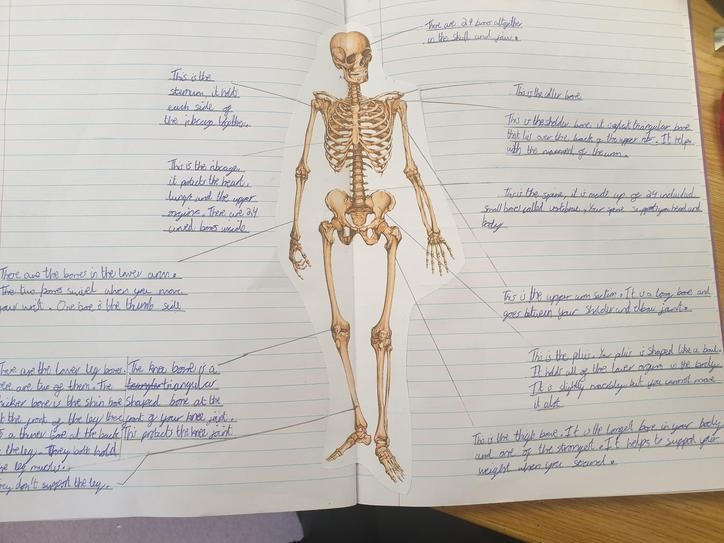 There are 29 bones altogether
in the skull and jaw.
This is the
sternum, it holds
each side of
the ribcage together.
This is the ribcage,
it protects the heart,
lungs and the upper
organs. There are 24
curved bones inside
There are the bones in the lower arm.
The two bones swivel when you move
your wrist. One bone is the thumb side
are the lower leg bones.
are two of them. The
bone is the shin bone
at the front of the leg
a thinner bone at the back
the leg. They both hold
leg
don't support the leg.
The knee bone is a
triangular
shaped bone at the
front of your knee joint.
This protects the knee joint
This is the collar bone
This is the sholder bone, it is a flat triangular bone
that lies over the back of the upper It helps
with the movement of the arm.
This is the spine, it is made up of 24
small bones called Your spine supports your head and
body.
This is the upper arm section. It is a long bone and
goes between your sholder and elbow joint.
This is the Your is shaped like a bowl.
It holds all of the lower organs in the body.
It is slightly but you cannot move
it alot.
This is the thigh bone. It is the longest bone in your body
and one of the strongest. It helps to support your
weight when you